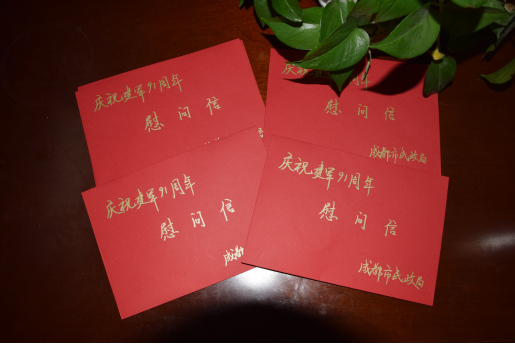 庆祝建军91周年
慰问信
庆祝建军91周年
慰问信
成都市民政局
庆祝建军91周年
慰问信
成都
庆祝建军91周年
慰问信
成都市民政局